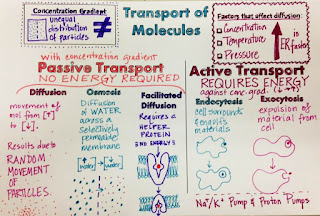 Concentration Gradient
unequal
distribution
of particles
≠
Transport of
Molecules
Factors that affect diffusion:
Concentration
Temperature
Pressure
is faster
with concentration gradient
Passive Transport
NO ENERGY REQUIRED
Active Transport
REQUIRES ENERGY
against conc. grad.
Diffusion
movement of
mol. from [↑]
to [↓].
Results due to
RANDOM
MOVEMENT
OF
PARTICLES.
Osmosis
Diffusion
of WATER
across a
selectively
permeable
membrane
water
water
Facilitated
Diffusion
Requires a
HELPER
PROTEIN
Endocytosis
cell surrounds
& engulfs
materials
Exocytosis
expulsion of
material from
cell
Na⁺/K⁺ Pump & Proton Pumps